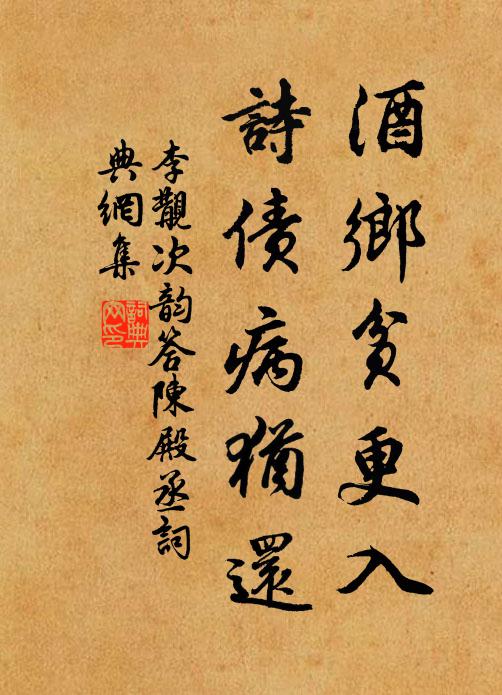 酒鄉貧更入
詩債病猶還
李覯次韵答陳殿丞詞
典網集
詞典
网印